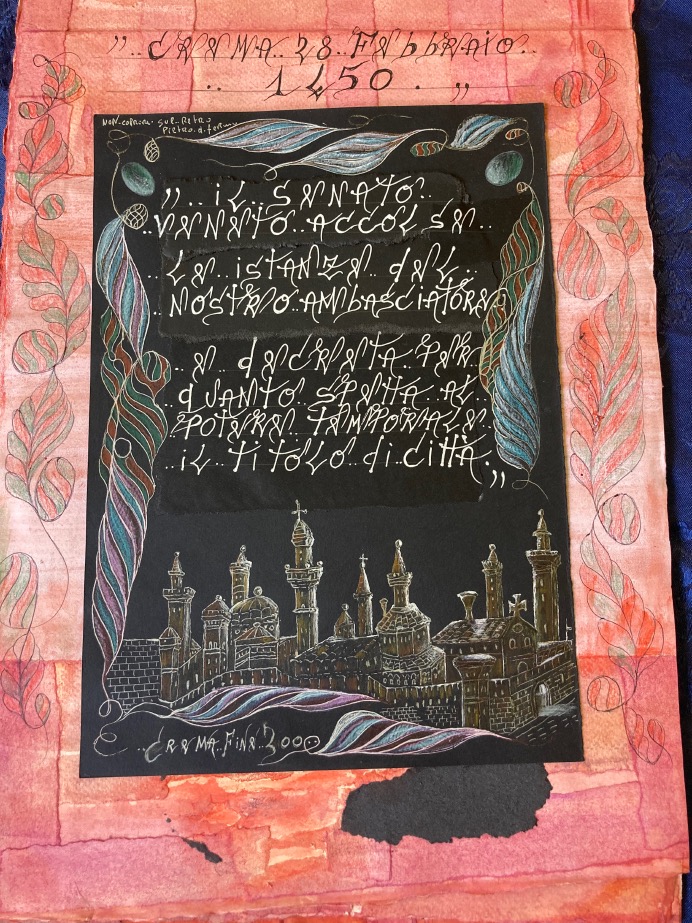 ,, .. CREMA.. 28.. FEbbRAiO..
.. 1450 . ,,
NON.. COPRIRE.. SUL.. RETRO
,, .. iL.. SENATO..
VENETO.. ACCOLSE..
.. LE iSTANZE.. dEL..
.. NOSTRO AMbASCiATORE
.. E dECRETA.. PER
qUANTO SPETTA AL..
.. POTERE.. TEMPORALE
.. iL.. TiTOLO.. di.. CiTTÀ. ,,
.. CREMA.. FINE.. 2000..